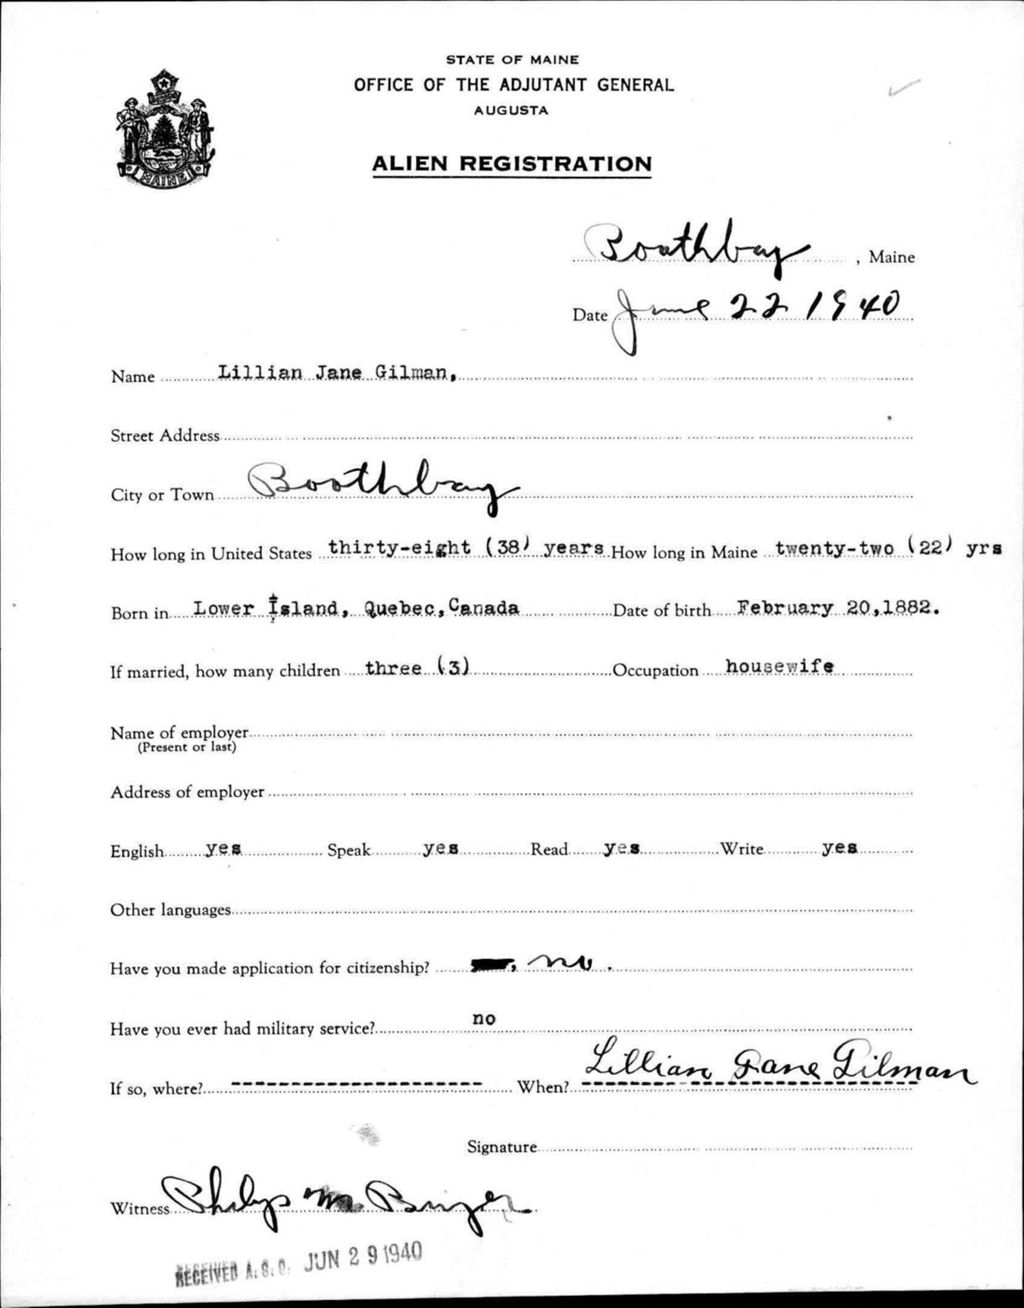 STATE OF MAINE
OFFICE OF THE ADJUTANT GENERAL
AUGUSTA
ALIEN REGISTRATION
MAINE
Boothbay, Maine
Date June 22 1940
Name Lillian Jane Gilman,
Street Address
City or Town Boothbay
How long in United States thirty-eight (38) years How long in Maine twenty-two (22) yrs
Born in Lower Island, Quebec, Canada Date of birth February 20, 1882.
If married, how many children three (3) Occupation housewife
Name of employer
(Present or last)
Address of employer
English yes Speak yes Read yes Write yes
Other languages
Have you made application for citizenship? no.
Have you ever had military service? no
Lillian Jane Gilman
If so, where? -------------------------- When? --------------------------
Signature
Witness M.
RECEIVED A.G.O. JUN 29 1940